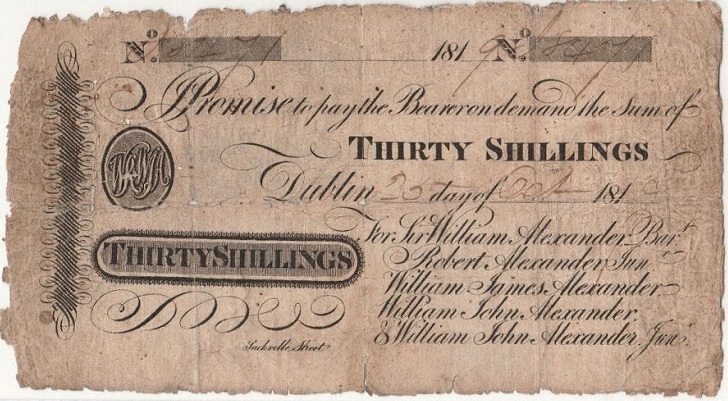 N.o 181 N.o 
I Promise to pay the Bearer on demand the Sum of
THIRTY SHILLINGS
Dublin 25 day of Oct 181
THIRTY SHILLINGS
For Sir William Alexander Bart
Robert Alexander Junr
William James Alexander
William John Alexander
& William John Alexander Junr.
Sackville Street